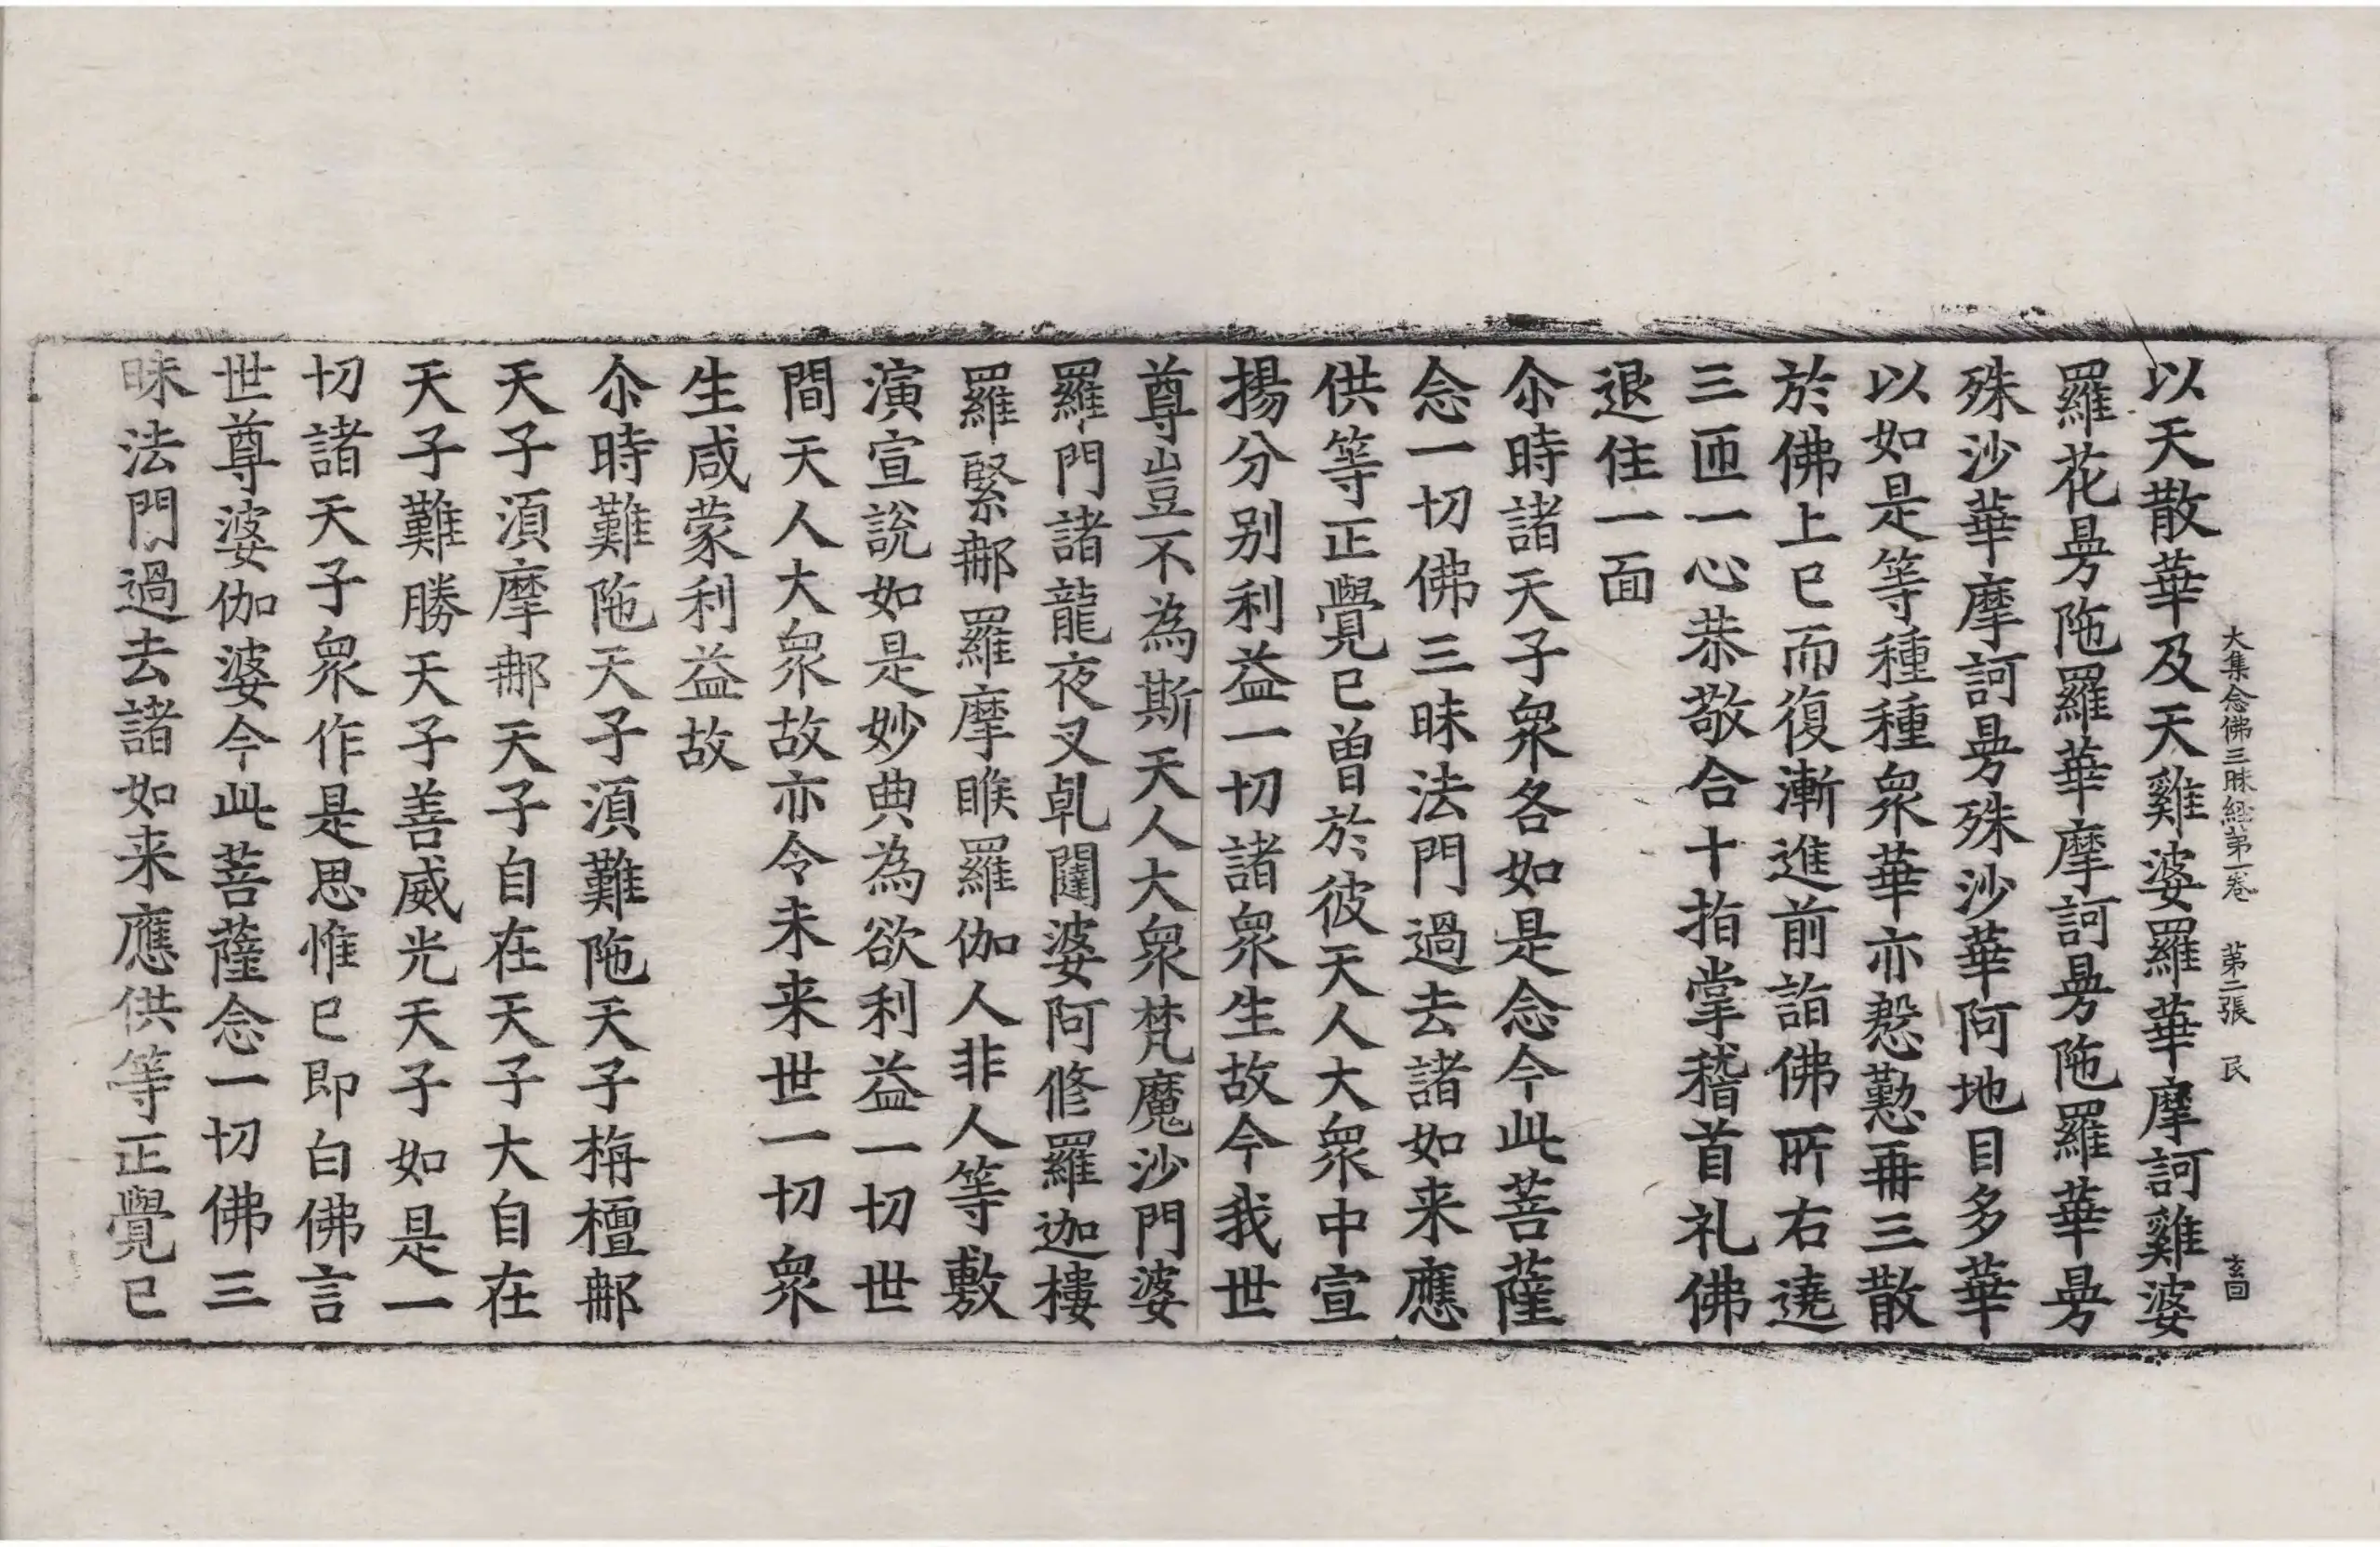 大集念佛三昧經第一卷 第二張 民 玄囙
以天散華及天雞婆羅華摩訶雞婆
羅花曼陁羅華摩訶曼陁羅華曼
殊沙華摩訶曼殊沙華阿地目多華
以如是等種種衆華亦慇懃再三散
於佛上已而復漸進前詣佛所右遶
三匝一心恭敬合十指掌稽首礼佛
退住一面
尒時諸天子衆各如是念今此菩薩
念一切佛三昧法門過去諸如来應
供等正覺已曽於彼天人大衆中宣
揚分别利益一切諸衆生故今我世
尊豈不為斯天人大衆梵魔沙門婆
羅門諸龍夜叉乹闥婆阿修羅迦樓
羅緊那羅摩睺羅伽人非人等敷
演宣說如是妙典為欲利益一切世
間天人大衆故亦令未来世一切衆
生咸蒙利益故
尒時難陁天子湏難陁天子栴檀那
天子湏摩那天子自在天子大自在
天子難勝天子善威光天子如是一
切諸天子衆作是思惟已即白佛言
世尊婆伽婆今此菩薩念一切佛三
昧法門過去諸如来應供等正覺已